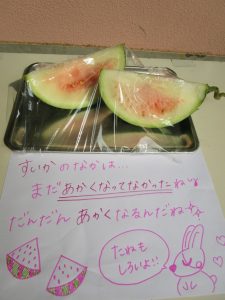 すいかのなかは…
まだあかくなってなかったね
だんだんあかくなるんだね
たねも
しろいよ!!